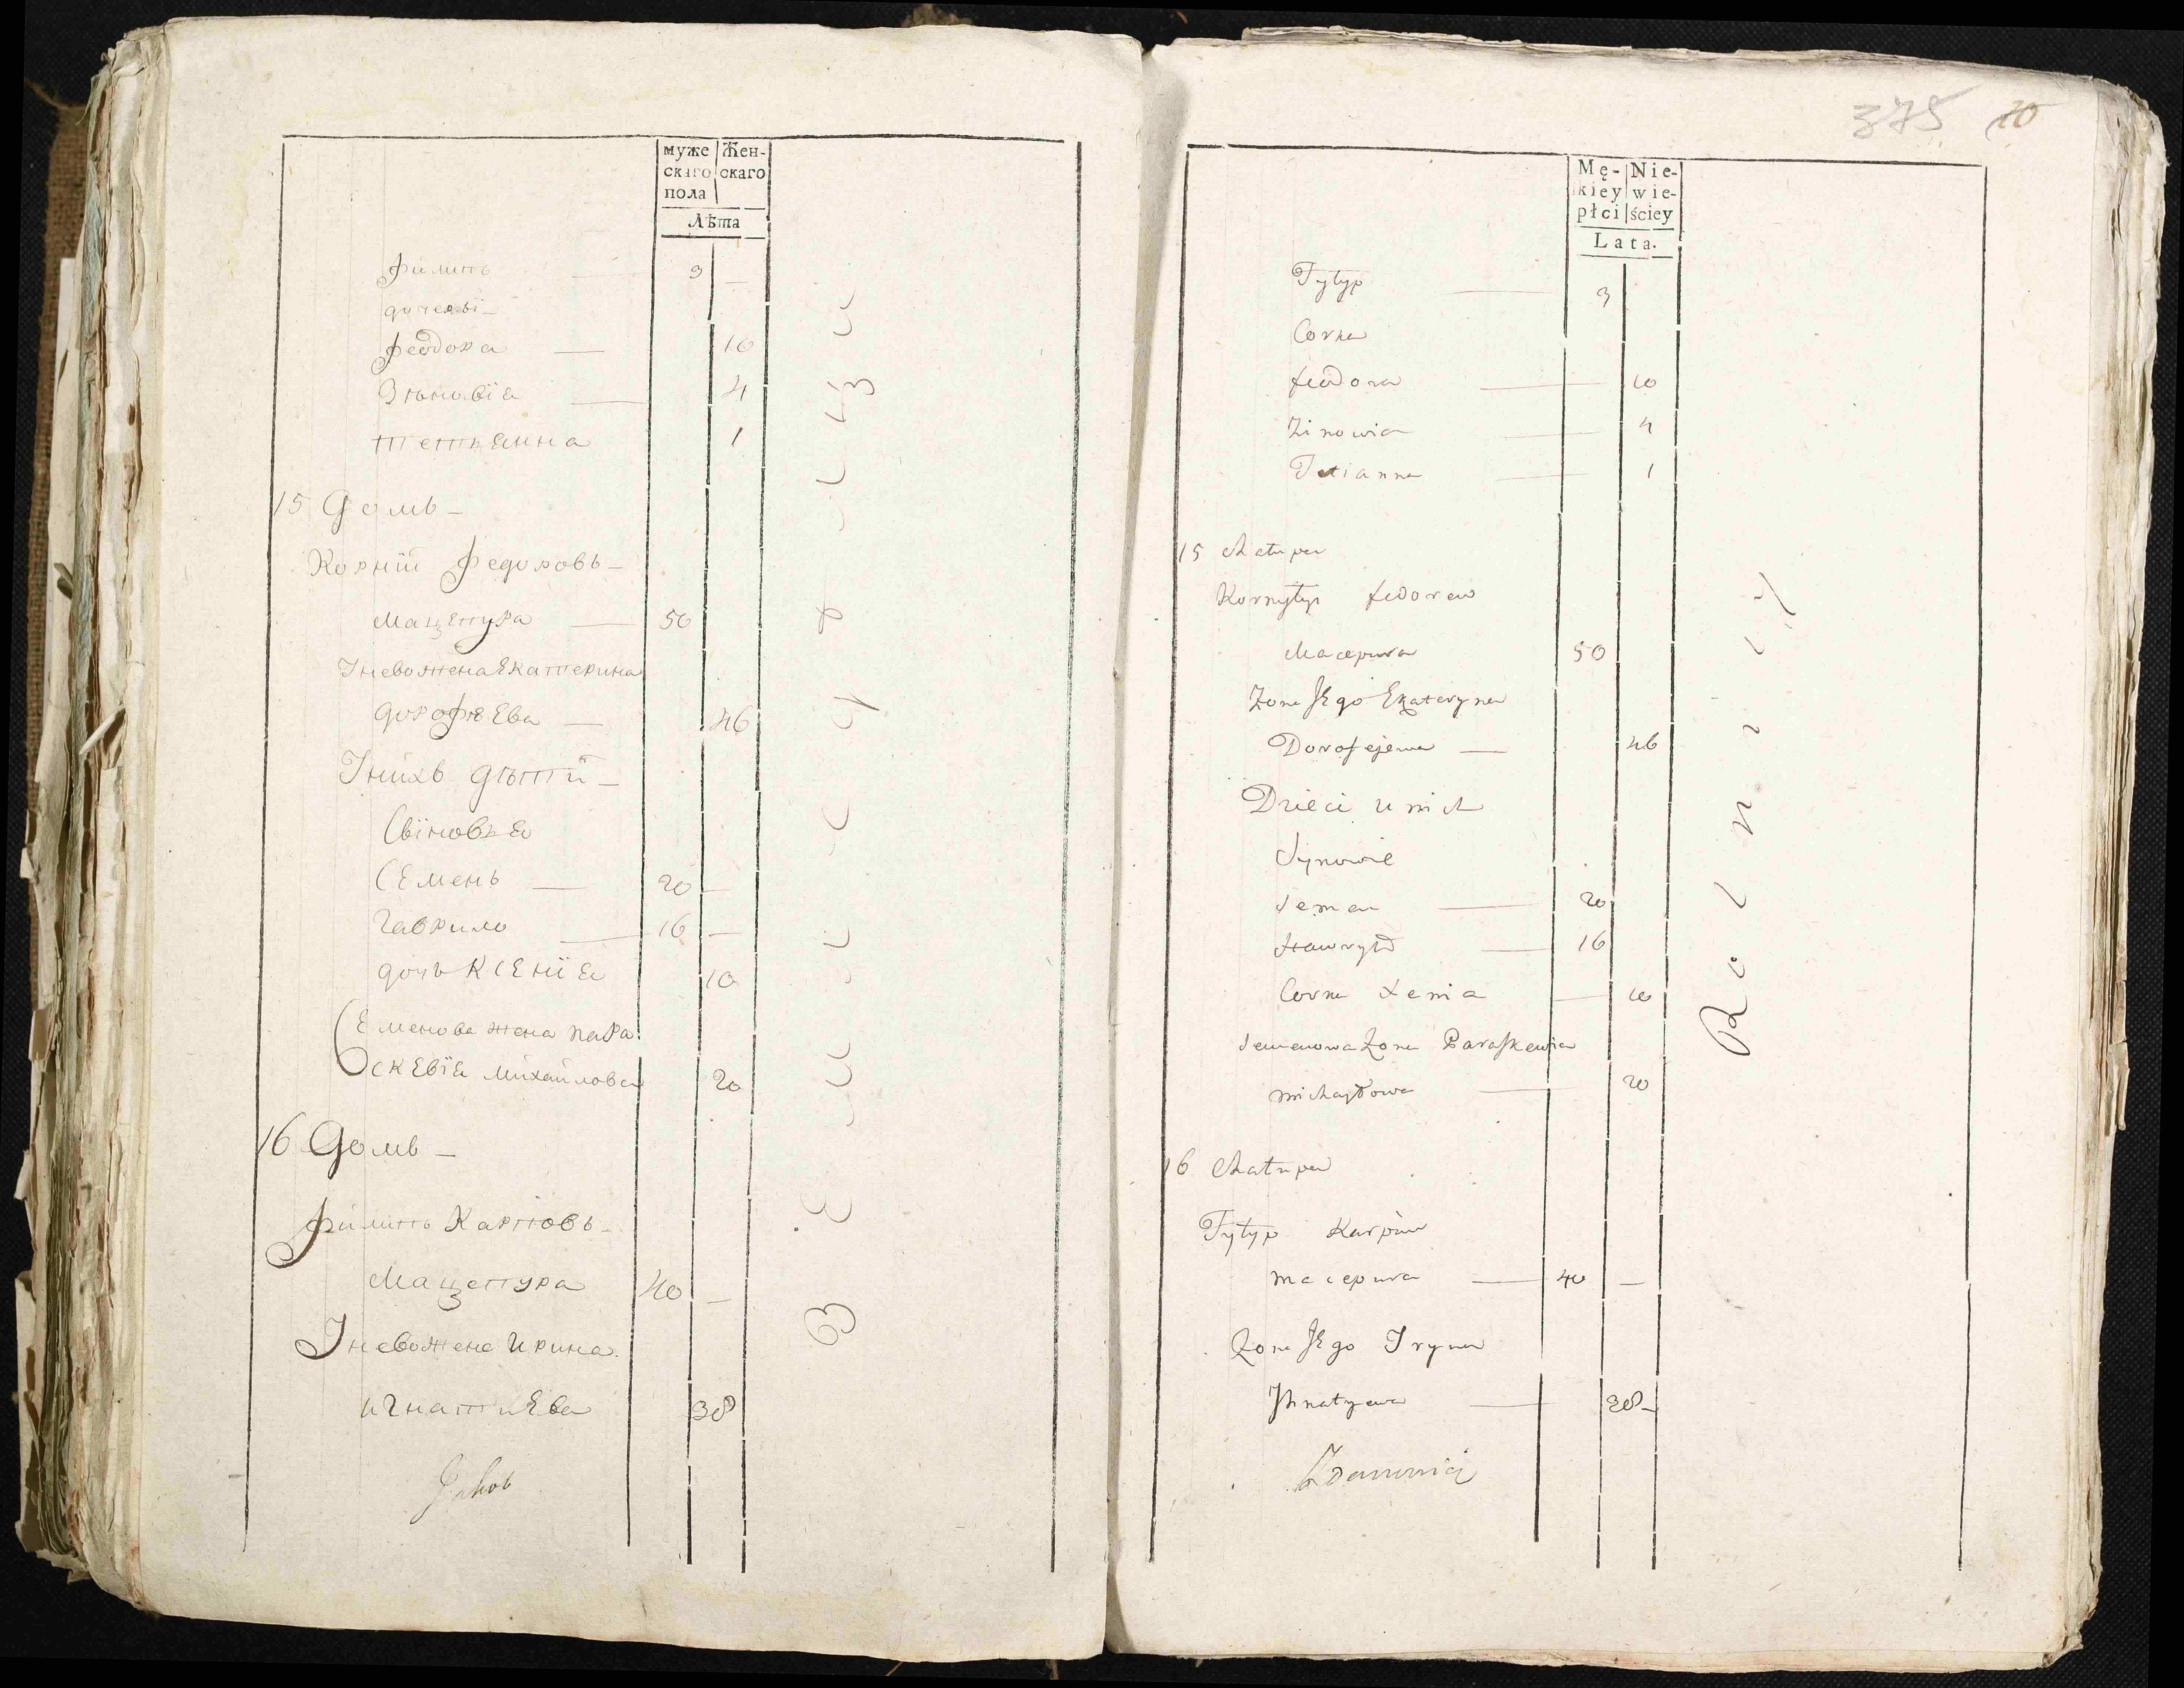 муже Жен-
скаго скаго
пола
Лѣта
Филипъ — 3 —
дочеры —
Феодора — 10
Зѣновїя — 4
Тетияна 1
15 Домъ —
Корнїй Федоровъ —
Мацепура — 50
У него жена Екатерина
Дорофѣева — 46
У нихъ дѣтй —
Сыновья
Семенъ — 20 —
Гаврило — 16 —
дочь Ксенїя 10
Семенова жена Пара
скевїя Михайлова 20
16 Домъ —
Филипъ Карповъ —
Мацепура 40 —
У него жена Ирина
Игнатиева 38
Земледельцы
375 20
Mę- Nie-
kiey wie-
płci ściey
Lata.
Fytyp — 3
Corka
Feodora — 10
Zinowia — 4
Tatianna — 1
15 Chatupa
Kornytyi Fedorew
Macepura 50
Zona Jego Ekateryna
Dorofejewa — 46
Dzieci u nich
Synowie
Seman — 20
Hawryło — 16
Corka Xenia — 10
Semenowa Zona Paraskewia
Michayłowa — 20
16 Chatupa
Fytyp Karpow
Macepura — 40 —
Zona Jego Iryna
Ihnatyewa — 38 —
Rolnicy